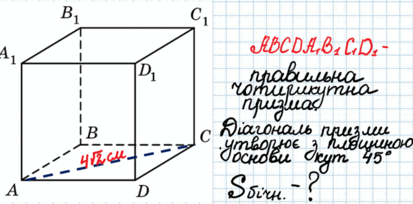 B₁
C₁
A₁
D₁
B
C
4√2 см
A
D
ABCDA₁B₁C₁D₁ -
правильна
чотирикутна
призма.
Діагональ призми
утворює з площиною
основи кут 45°
Sбічн. - ?